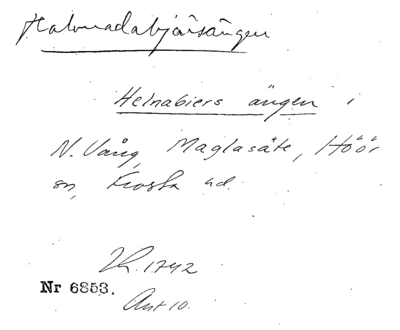 Halvmadabjärsängen
Helnabiers ängen i
N. Vång, Maglasäte, Höör
sn, Frosta hd.
LK. 1742
Nr 6853.
Akt 10.